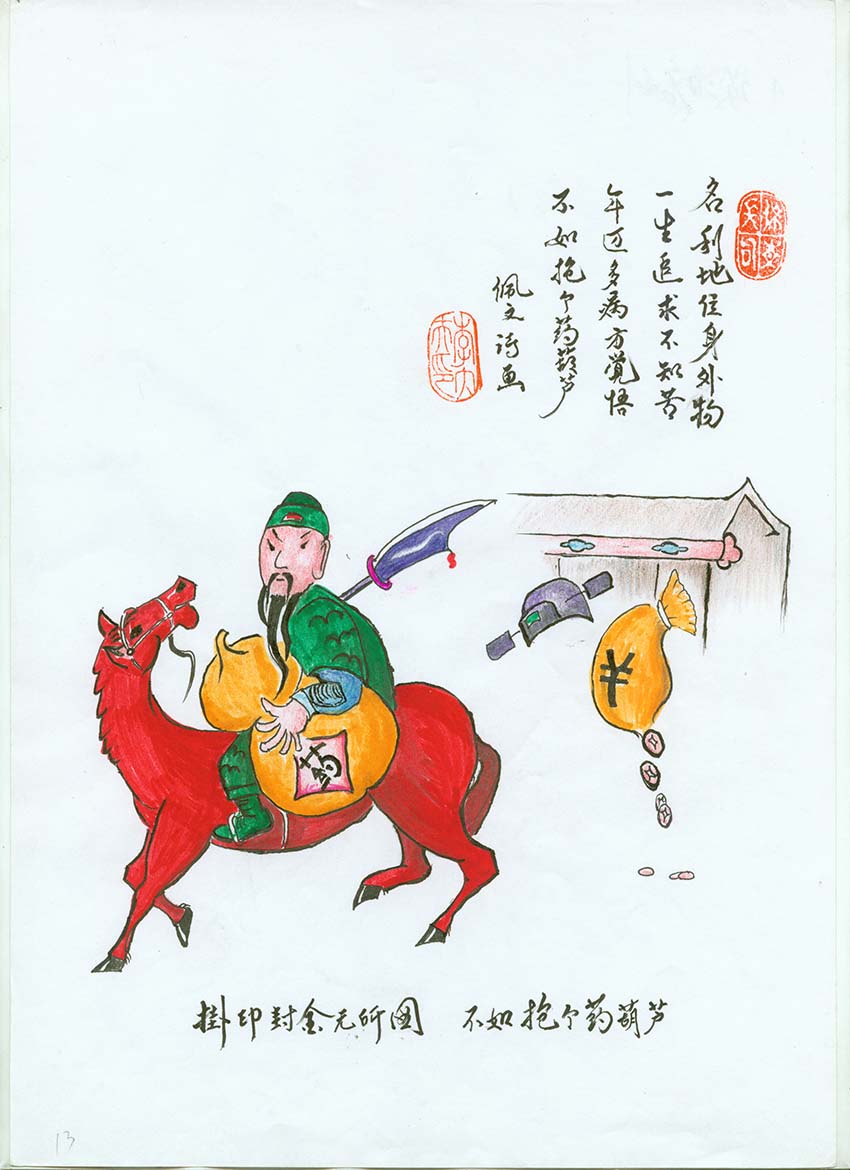 名利地位身外物
一生追求不知苦
年迈多病方觉悟
不如抱个药葫芦
佩文诗画
药
¥
掛印封金无所图 不如抱个药葫芦
13